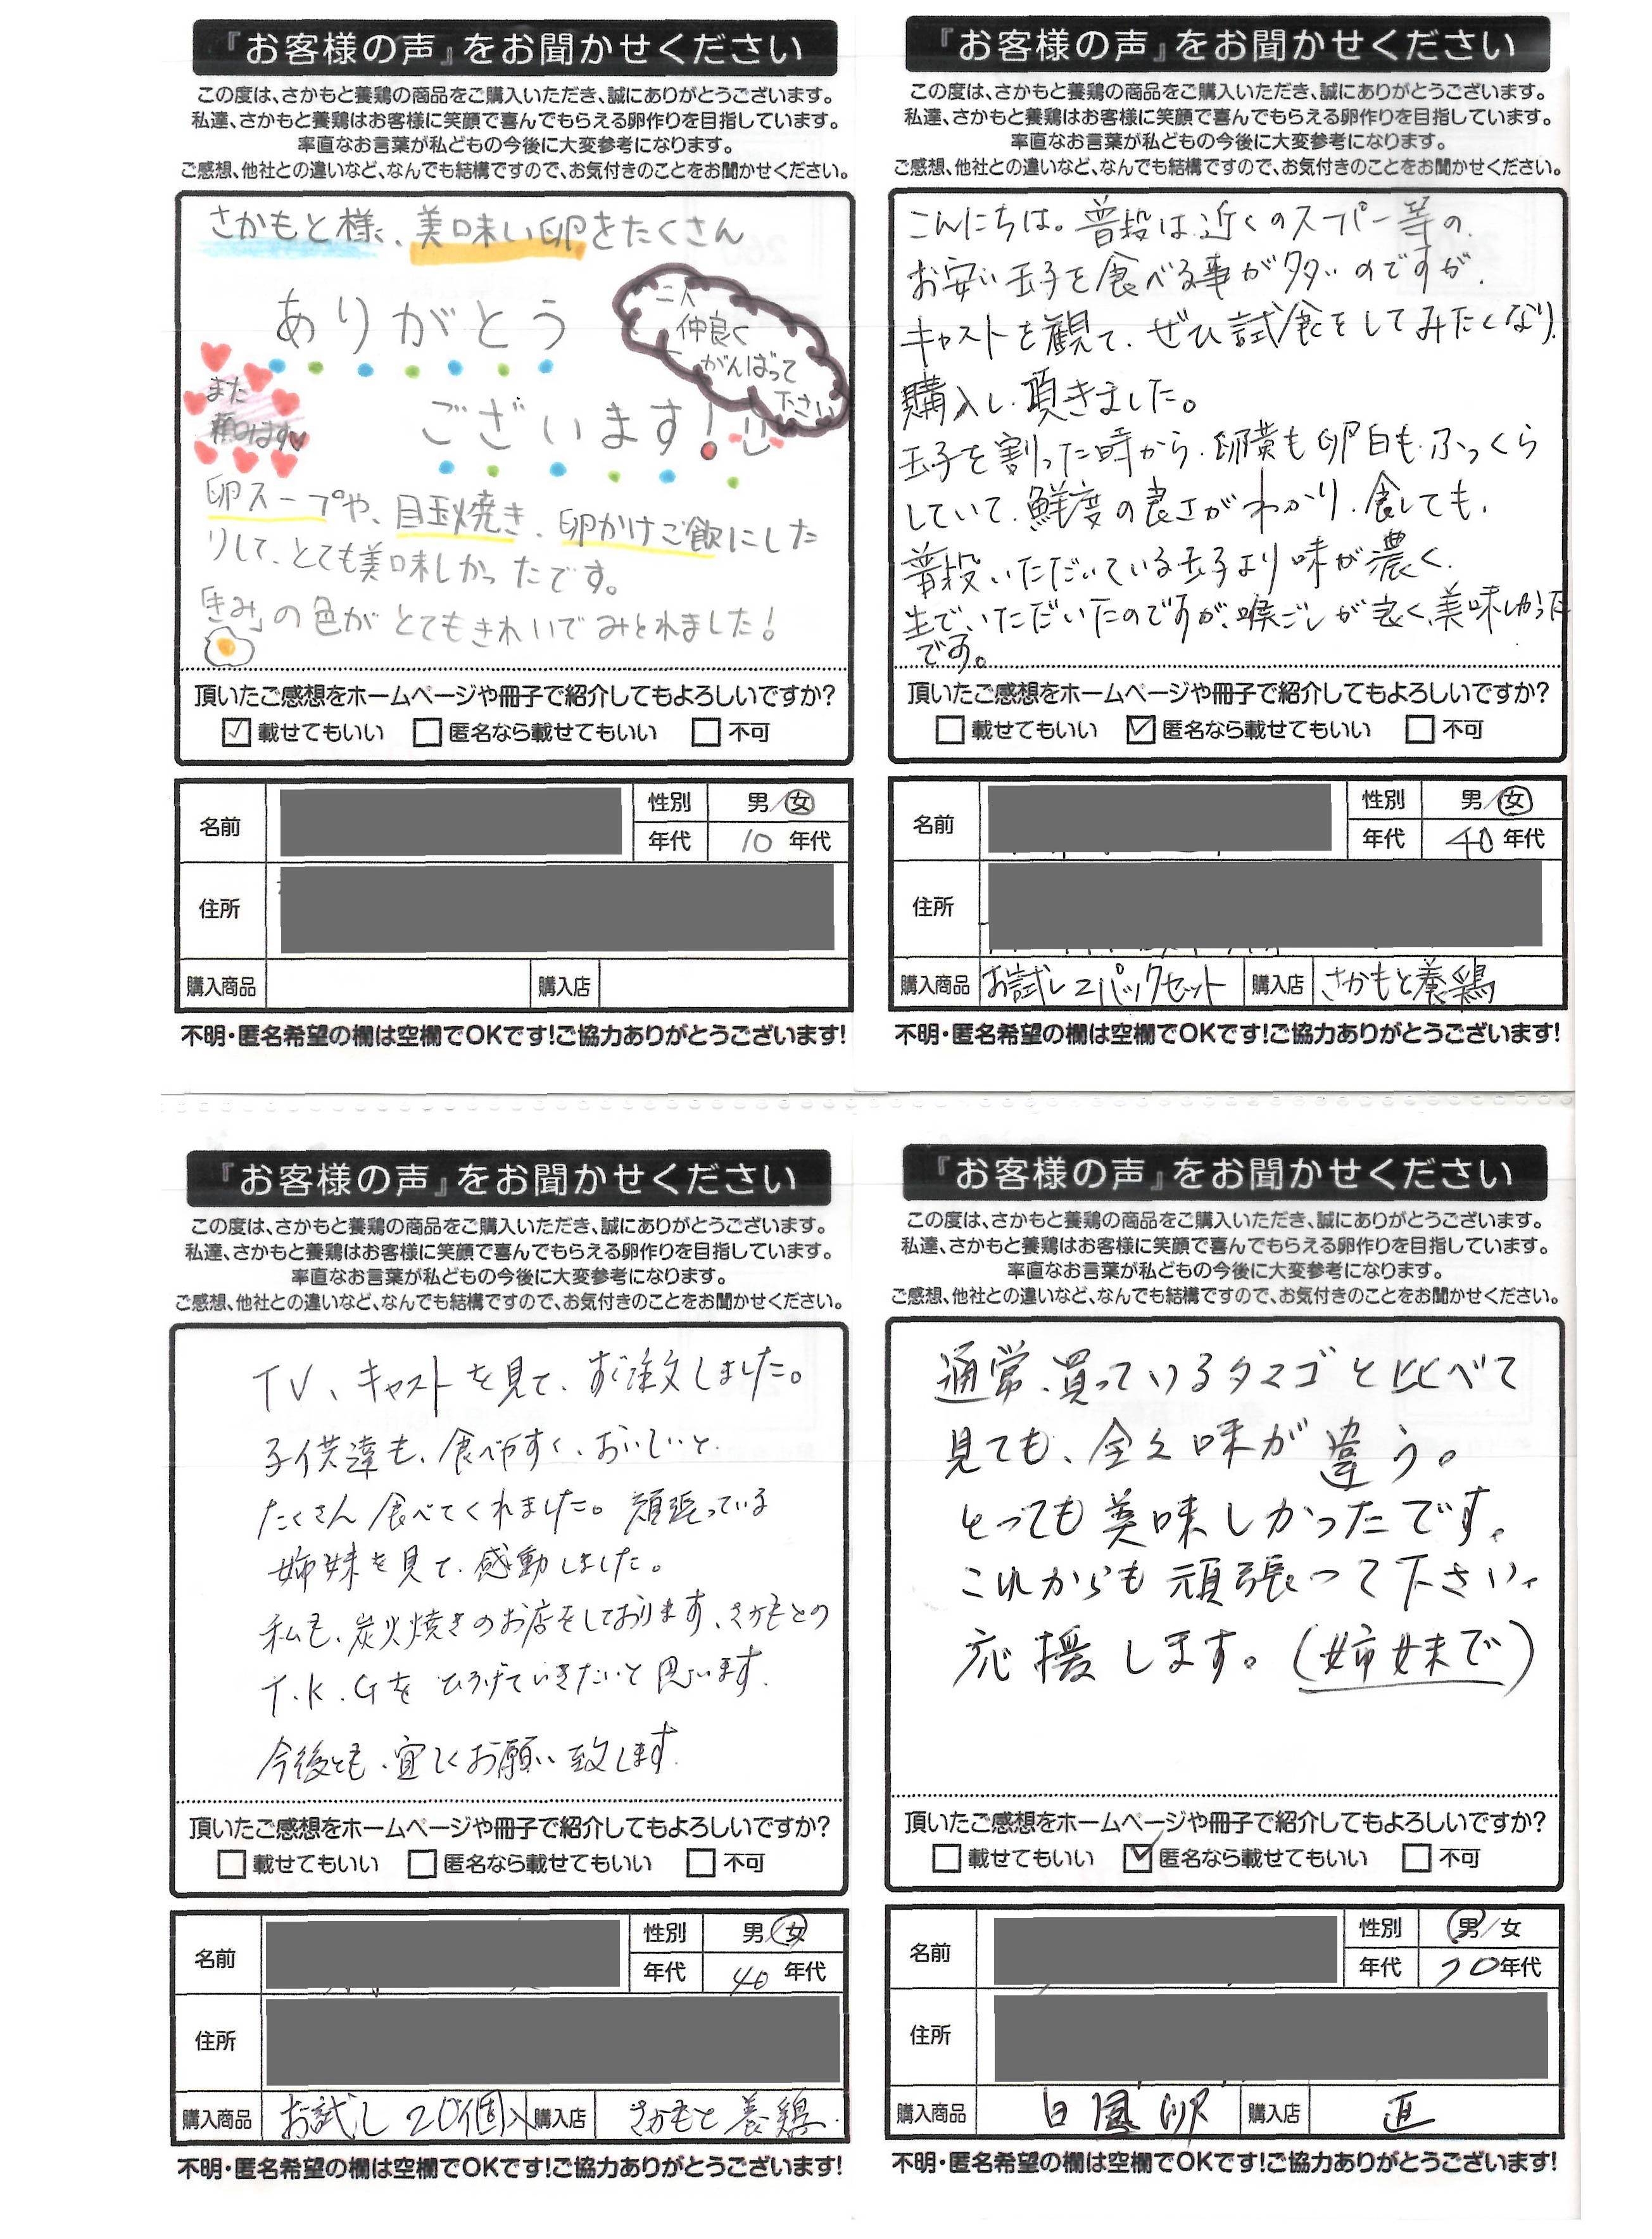 『お客様の声』をお聞かせください
この度は、さかもと養鶏の商品をご購入いただき、誠にありがとうございます。
私達、さかもと養鶏はお客様に笑顔で喜んでもらえる卵作りを目指しています。
率直なお言葉が私どもの今後に大変参考になります。
ご感想、他社との違いなど、なんでも結構ですので、お気付きのことをお聞かせください。
さかもと様、美味い卵をたくさん
ありがとう
ございます!
二人
仲良く
がんばって
下さい
また
頼みます
卵スープや、目玉焼き、卵かけご飯にした
りして、とても美味しかったです。
「きみ」の色がとてもきれいでみとれました!
頂いたご感想をホームページや冊子で紹介してもよろしいですか?
載せてもいい 匿名なら載せてもいい 不可
名前 性別 男/女
年代 10 年代
住所
購入商品 購入店
不明・匿名希望の欄は空欄でOKです!ご協力ありがとうございます!
『お客様の声』をお聞かせください
この度は、さかもと養鶏の商品をご購入いただき、誠にありがとうございます。
私達、さかもと養鶏はお客様に笑顔で喜んでもらえる卵作りを目指しています。
率直なお言葉が私どもの今後に大変参考になります。
ご感想、他社との違いなど、なんでも結構ですので、お気付きのことをお聞かせください。
こんにちは。普段は近くのスーパー等の
お安い玉子を食べる事が多いのですが、
キャストを観て、ぜひ試食をしてみたくなり、
購入し、頂きました。
玉子を割った時から、卵黄も卵白も、ふっくら
していて、鮮度の良さがわかり、食しても、
普段いただいている玉子より味が濃く、
生でいただいたのですが、喉ごしが良く、美味しかった
です。
頂いたご感想をホームページや冊子で紹介してもよろしいですか?
載せてもいい 匿名なら載せてもいい 不可
名前 性別 男/女
年代 40 年代
住所
購入商品 お試し2パックセット 購入店 さかもと養鶏
不明・匿名希望の欄は空欄でOKです!ご協力ありがとうございます!
『お客様の声』をお聞かせください
この度は、さかもと養鶏の商品をご購入いただき、誠にありがとうございます。
私達、さかもと養鶏はお客様に笑顔で喜んでもらえる卵作りを目指しています。
率直なお言葉が私どもの今後に大変参考になります。
ご感想、他社との違いなど、なんでも結構ですので、お気付きのことをお聞かせください。
TV、キャストを見て、すぐ注文しました。
子供達も、食べやすく、おいしいと、
たくさん食べてくれました。頑張っている
姉妹を見て、感動しました。
私も、炭火焼きのお店をしております、さかもとの
T.K.Gをひろげていきたいと思います。
今後とも、宜しくお願い致します。
頂いたご感想をホームページや冊子で紹介してもよろしいですか?
載せてもいい 匿名なら載せてもいい 不可
名前 性別 男/女
年代 40 年代
住所
購入商品 お試し20個入 購入店 さかもと養鶏
不明・匿名希望の欄は空欄でOKです!ご協力ありがとうございます!
『お客様の声』をお聞かせください
この度は、さかもと養鶏の商品をご購入いただき、誠にありがとうございます。
私達、さかもと養鶏はお客様に笑顔で喜んでもらえる卵作りを目指しています。
率直なお言葉が私どもの今後に大変参考になります。
ご感想、他社との違いなど、なんでも結構ですので、お気付きのことをお聞かせください。
通常、買っているタマゴと比べて
見ても、全々味が違う。
とっても美味しかったです。
これからも頑張って下さい。
応援します。(姉妹で)
頂いたご感想をホームページや冊子で紹介してもよろしいですか?
載せてもいい 匿名なら載せてもいい 不可
名前 性別 男/女
年代 70年代
住所
購入商品 白凰卵 購入店 直
不明・匿名希望の欄は空欄でOKです!ご協力ありがとうございます!